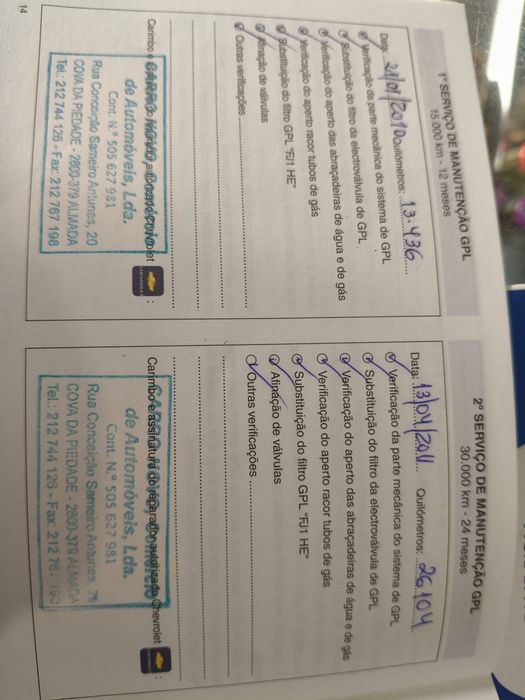 1º SERVIÇO DE MANUTENÇÃO GPL
15.000 km - 12 meses
Data: 21/01/2010 Quilómetros: 13.436
Verificação da parte mecânica do sistema de GPL
Substituição do filtro da electroválvula de GPL
Verificação do aperto das abraçadeiras de água e de gás
Verificação do aperto racor tubos de gás
Substituição do filtro GPL "FJ1 HE"
Afinação de válvulas
Outras verificações
Carimbo e assinatura do reparador autorizado Chevrolet
:
de Automóveis, Lda.
Cont. N.º 505 627 981
Rua Conceição Sameiro Antunes, 20
COVA DA PIEDADE - 2800-379 ALMADA
Tel.: 212 744 126 - Fax: 212 767 198
14
2º SERVIÇO DE MANUTENÇÃO GPL
30.000 km - 24 meses
Data: 13/04/2011 Quilómetros: 26.104
Verificação da parte mecânica do sistema de GPL
Substituição do filtro da electroválvula de GPL
Verificação do aperto das abraçadeiras de água e de gás
Verificação do aperto racor tubos de gás
Substituição do filtro GPL "FJ1 HE"
Afinação de válvulas
Outras verificações
Carimbo e assinatura do reparador autorizado Chevrolet
:
de Automóveis, Lda.
Cont. N.º 505 627 981
Rua Conceição Sameiro Antunes, 20
COVA DA PIEDADE - 2800-379 ALMADA
Tel.: 212 744 126 - Fax: 212 767 198